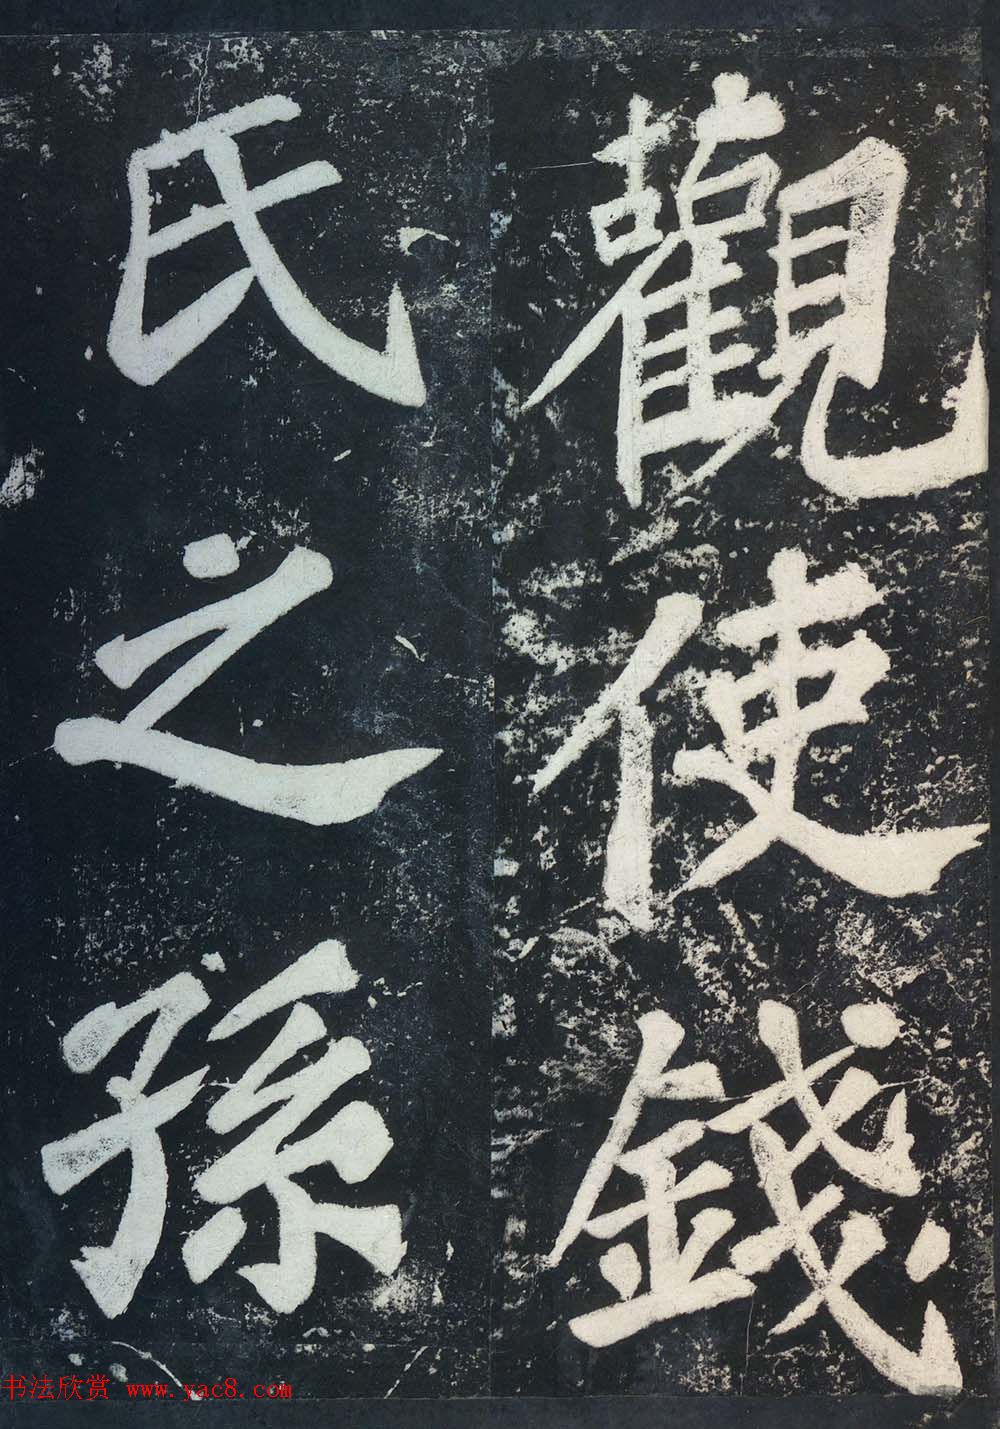 觀使錢
氏之孫
书法欣赏 www.yac8.com